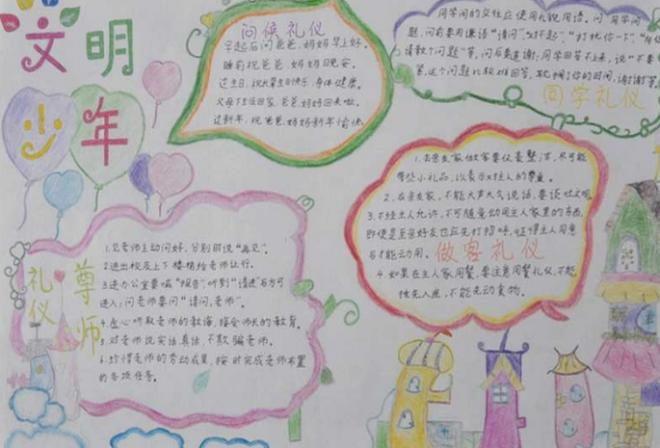 文明
少年
问候礼仪
早起后问爸爸、妈妈早上好。
睡前祝爸爸、妈妈晚安。
过生日,祝大家生日快乐,身体健康。
父母下班回家,爸爸、妈妈回来啦。
过新年,祝爸爸、妈妈新年愉快
同学间的交往应使用礼貌用语。问同学问
题,问前要用谦语“请问”、“对不起”、“打扰你一下”、
请教个问题”等。问后要道谢;同学回答不上来,说“不要
同学礼仪
1.去亲友家做客要仪表整洁,尽可能
带些小礼品,以表示对主人的尊重。
2.在亲友家,不能大声大气说话,要谈吐文明
3.不经主人允许,不可随意动用主人家里的东西,
即使是至亲好友也应先打招呼,征得主人同意
后才能动用。
做客礼仪
4.如果在主人家用餐,要注意用餐礼仪,不能
抢先入座,不能先动食物。
尊师
礼仪
1.见老师主动问好,分别时说“再见”。
2.进出校及上下楼梯给老师让行。
3.进办公室要喊“报告”,听到“请进”后方可
进入;问老师要问“请问,老师”。
4.虚心听取老师的教诲,接受师长的教育。
5.对老师说实话、真话,不欺骗老师。
6.珍惜老师的劳动成果,按时完成老师布置
的各项任务。